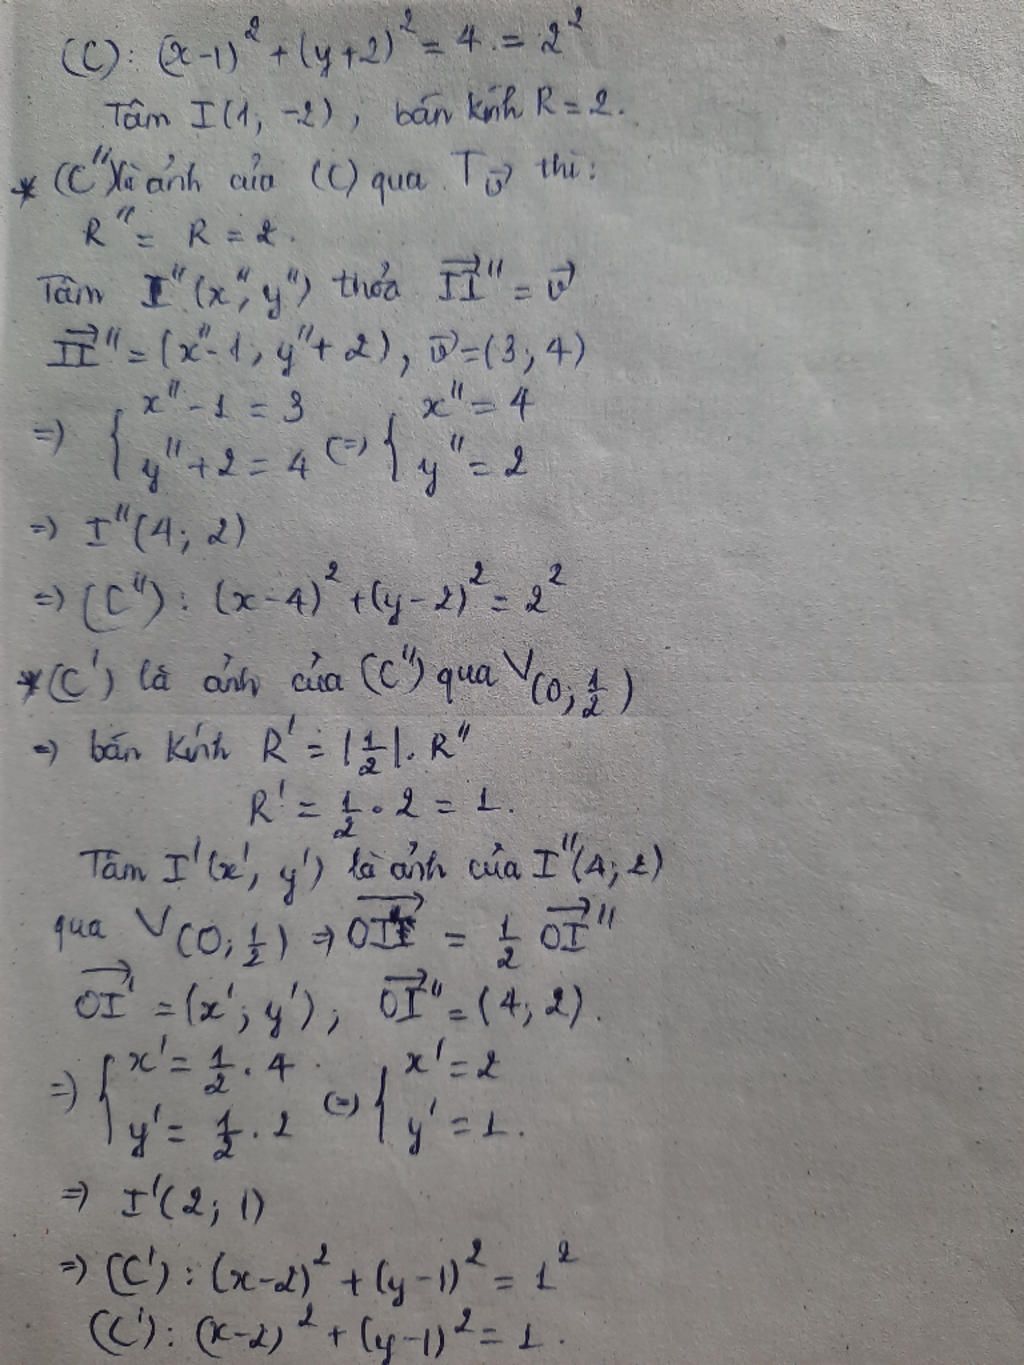 (C): (x-1)² + (y+2)² = 4. = 2²
Tâm I(1; -2), bán kính R = 2.
* (C'') là ảnh của (C) qua T_v⃗ thì:
R'' = R = 2.
Tâm I''(x'', y'') thỏa II''⃗ = v⃗
II''⃗ = (x''-1; y''+2), v⃗ = (3; 4)
=> { x''-1 = 3 ; y''+2 = 4 (=) { x'' = 4 ; y'' = 2
=> I''(4; 2)
=> (C''): (x-4)² + (y-2)² = 2²
* (C') là ảnh của (C'') qua V(O; 1/2)
=> bán kính R' = |1/2|. R''
R' = 1/2 . 2 = 1.
Tâm I'(x', y') là ảnh của I''(4; 2)
qua V(O; 1/2) => OI'⃗ = 1/2 OI''⃗
OI'⃗ = (x'; y'); OI''⃗ = (4; 2).
=> { x' = 1/2 . 4 ; y' = 1/2 . 2 (=) { x' = 2 ; y' = 1.
=> I'(2; 1)
=> (C'): (x-2)² + (y-1)² = 1²
(C'): (x-2)² + (y-1)² = 1.